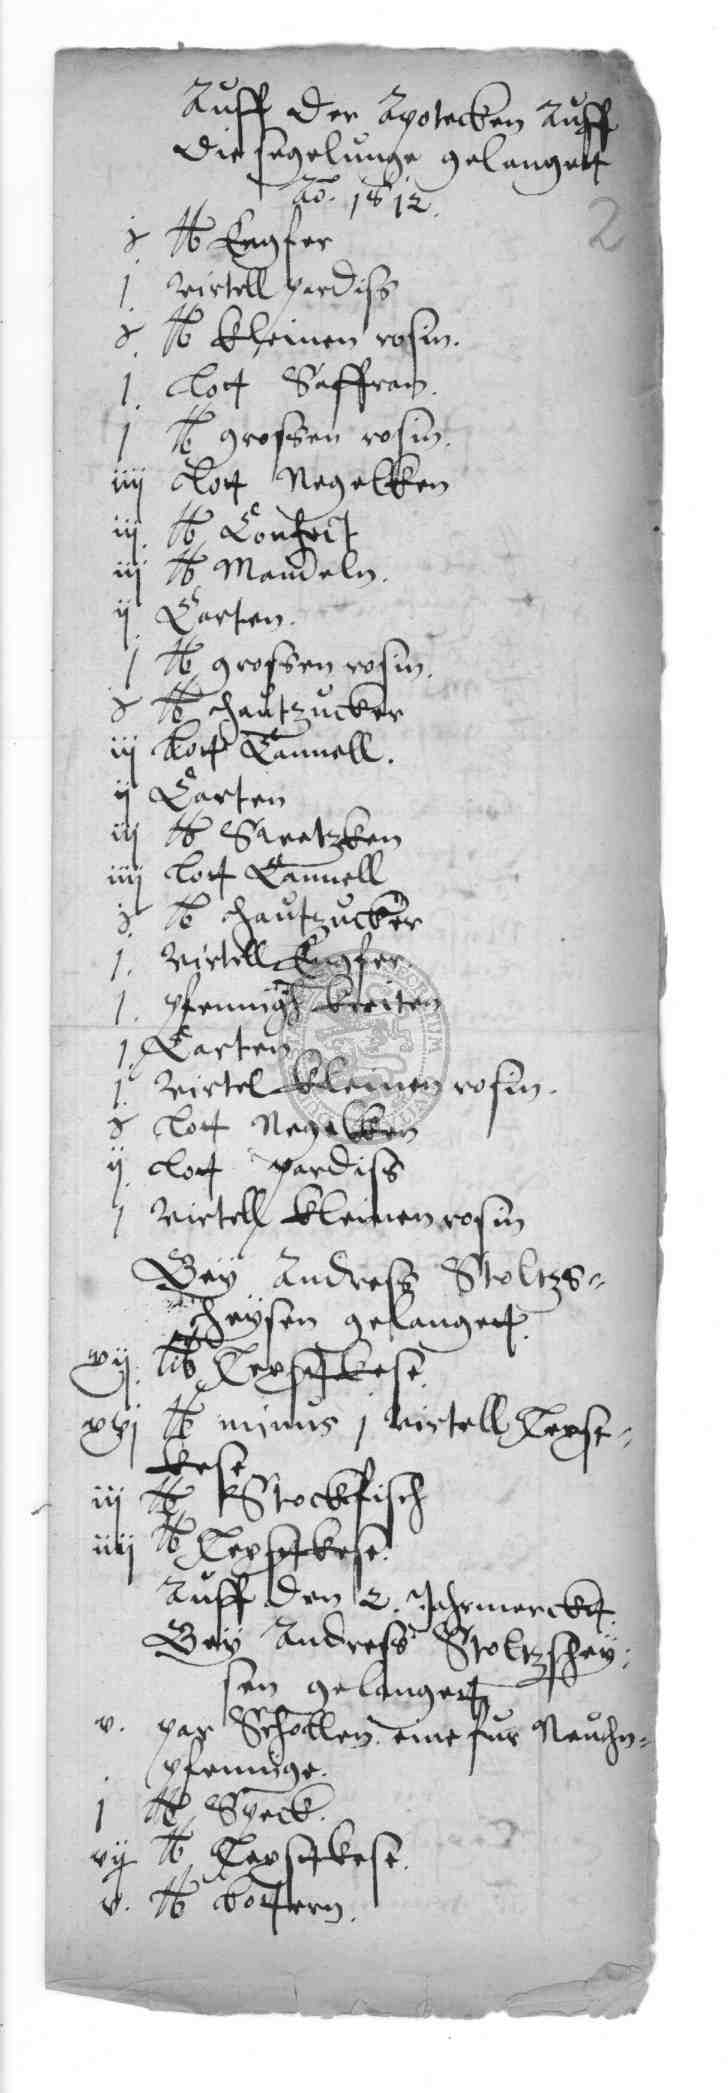 Auff der Apotecken Auff
die segelunge gelanget
Ao. 1612.
2
℔ Engfer
j virtell pardiss
℔ kleinen rosin.
j. lott Saffran.
j ℔ grossen rosin.
iiij lott Negelken
iij ℔ Confect
iij ℔ Mandeln.
ij Carten.
j ℔ grossen rosin.
℔ hautzucker
iij lott Cannell.
ij Carten
iij ℔ Sucketzken
iiij lott Cannell
℔ hautzucker
j. virtell Engfer.
j. pfennigh kreiten
j. Carten
j. virtel kleinen rosin.
lott Negelken
ij lott pardiss
j virtell kleinen rosin
Bey Andress Stoltzs=
heysen gelanget.
vij. ℔ kese.
xvj ℔ minus j virtell
kese
iij ℔ Stockfisch
iiij ℔ kese.
Auff den 2. Jahrmerckt
Bey Andress Stoltzshey=
sen gelanget
v. par Schollen. eine fur Neuhn=
pfennige.
j ℔ Speck.
vij ℔ kese.
v. ℔ bottern.